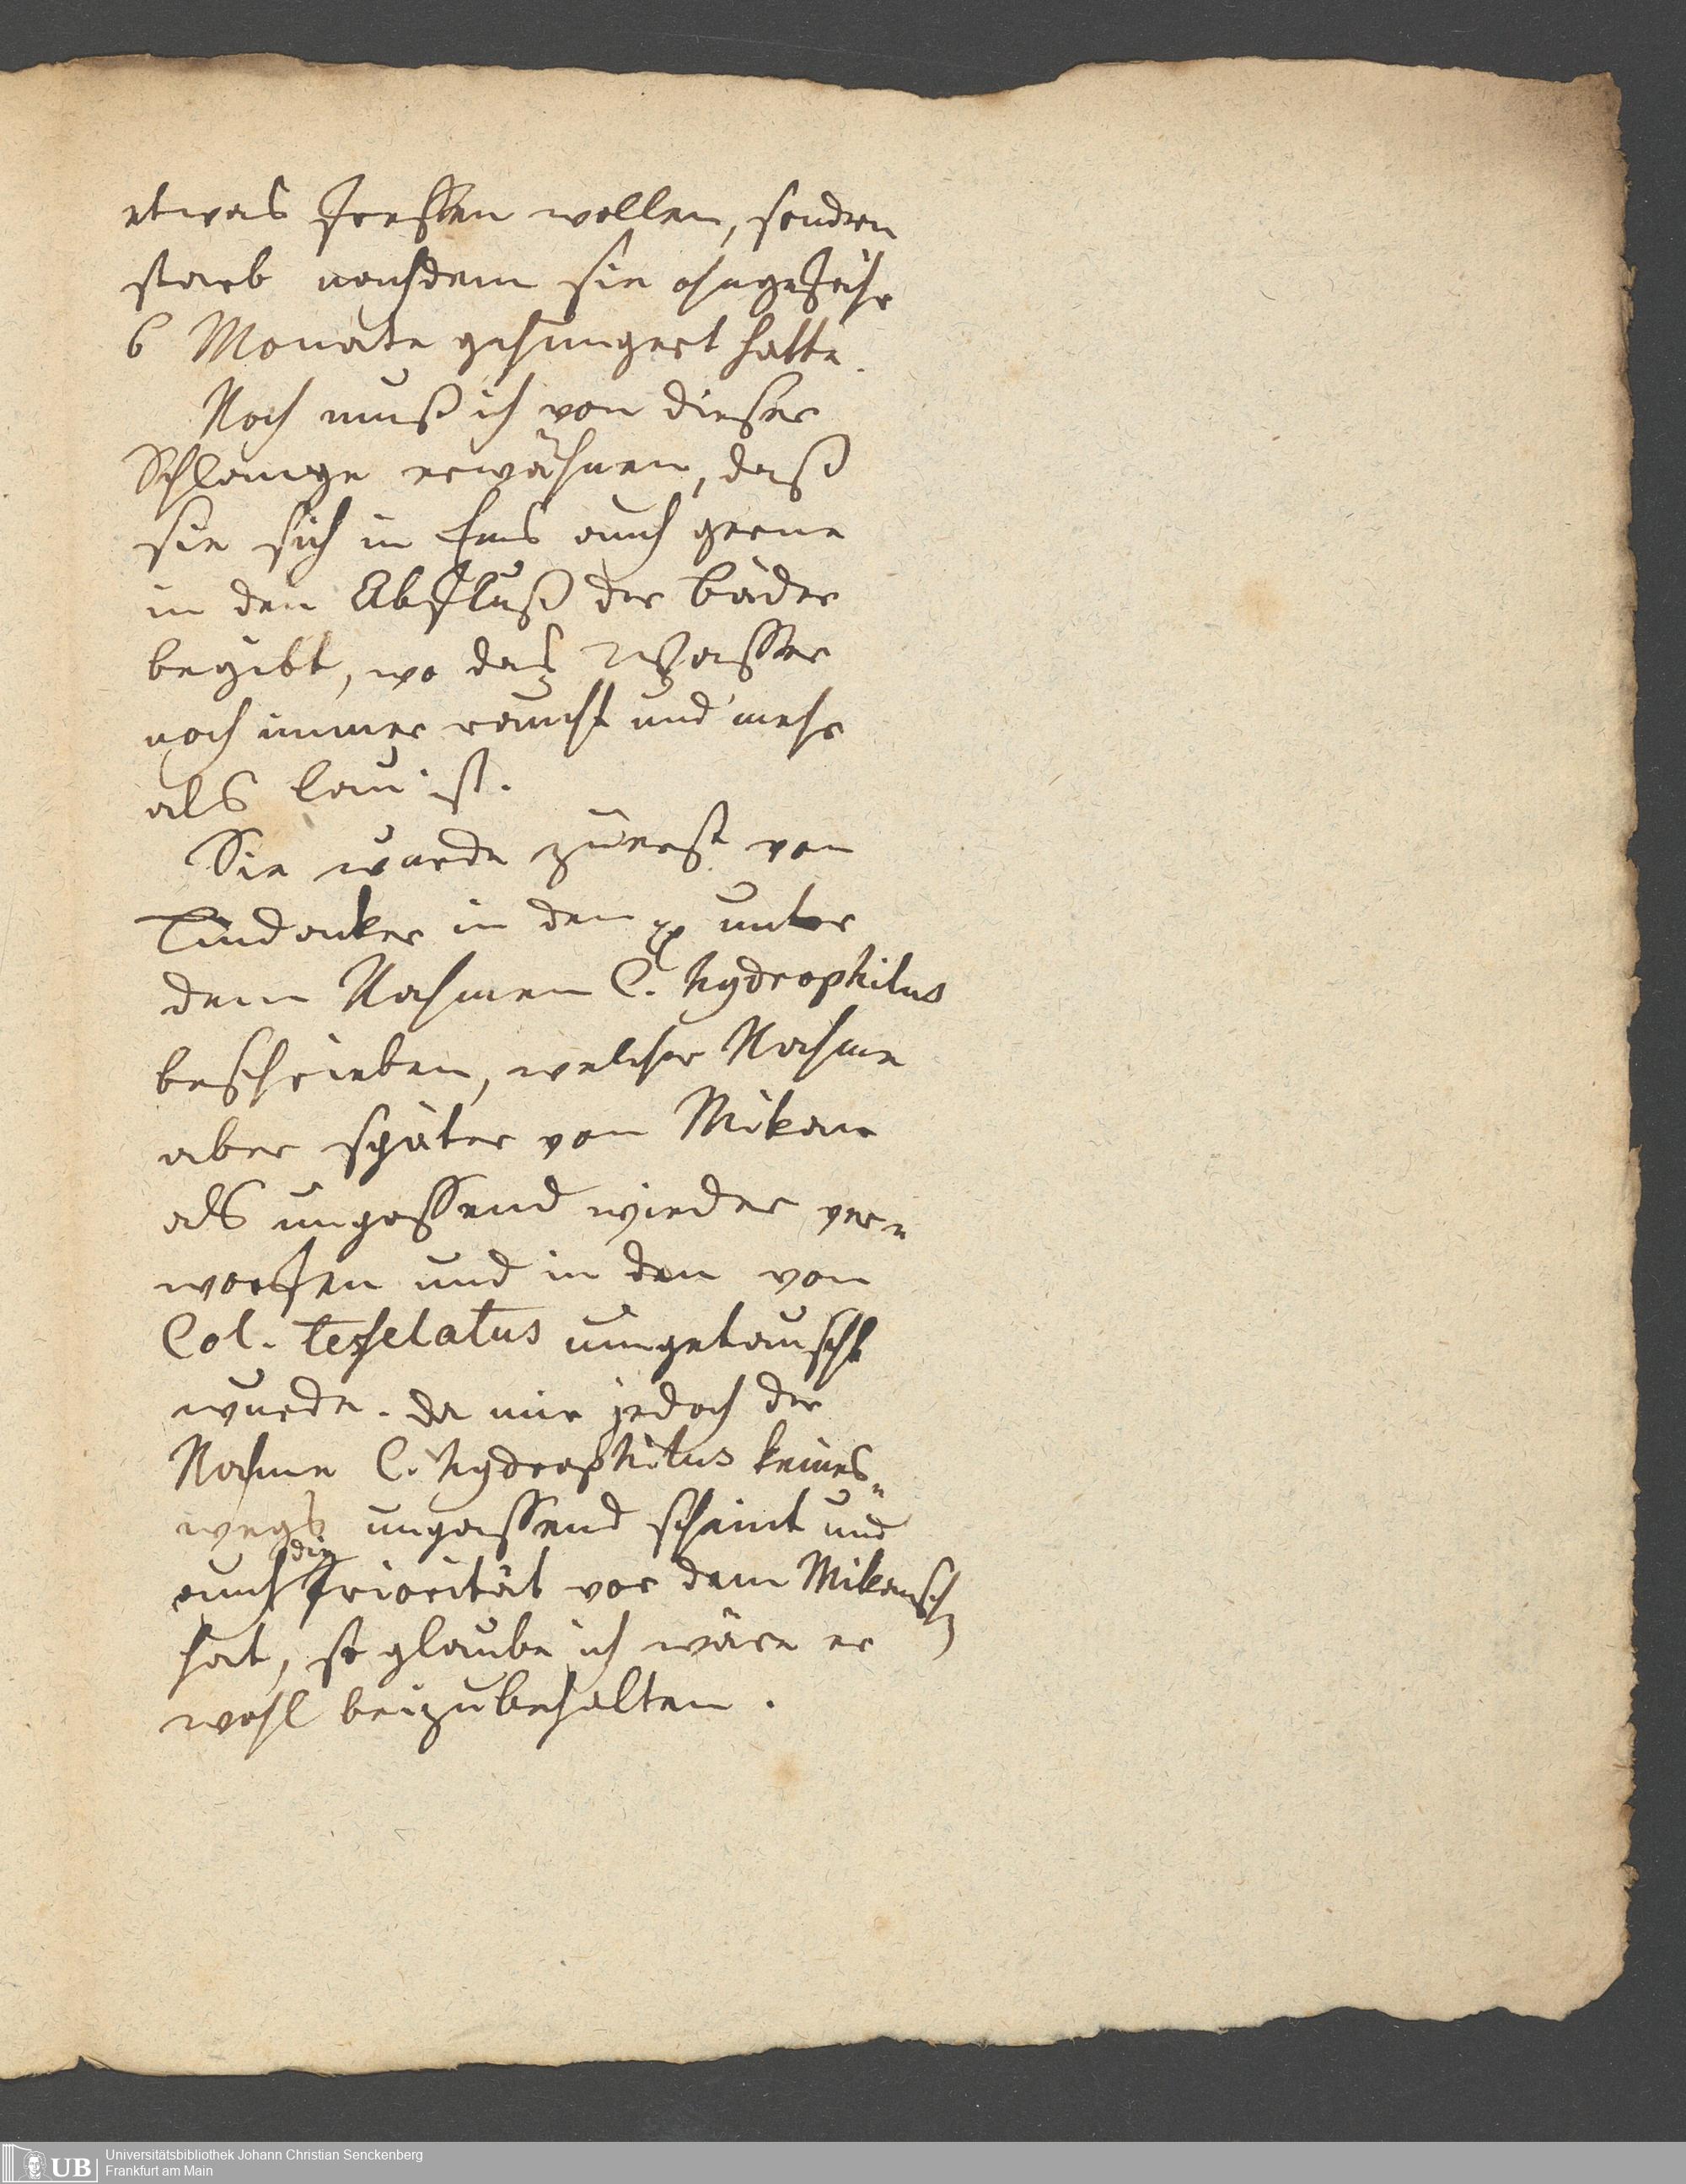 etwas fressen wollen, sondern
starb nachdem sie ohngefähr
6 Monate gehungert hatte.
Noch muß ich von dieser
Schlange erwähnen, daß
sie sich in Ems auch gerne
in den Abfluß der Bäder
begibt, wo das Wasser
noch immer raucht und mehr
als lau ist.
Sie wurde zuerst von
Lindacker in den unter
dem Nahmen C. hydrophilus
beschrieben, welcher Nahme
aber später von Mikan
als unpassend wieder ver=
worfen und in den von
Col. tesselatus umgetauscht
wurde. Da mir jedoch der
Nahme C. hydrophilus keines=
wegs unpassend scheint und
auch die Priorität vor dem Mikansch
hat, so glaube ich wäre er
wohl beizubehalten.
Universitätsbibliothek Johann Christian Senckenberg
UB Frankfurt am Main